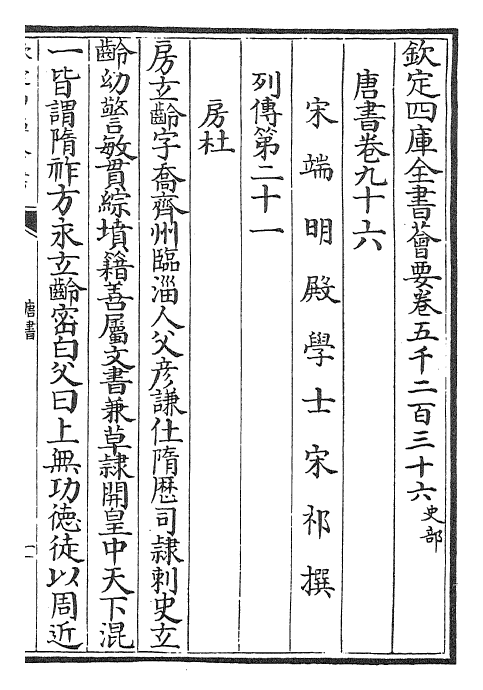 欽定四庫全書薈要卷五千二百三十六 史部
唐書卷九十六
宋端明殿學士宋祁撰
列傳第二十一
房杜
房立齡字喬齊州臨淄人父彥謙仕隋歴司隷刺史立
齡幼警敏貫綜墳籍善屬文書兼草隷開皇中天下混
一皆謂隋祚方永立齡密白父曰上無功徳徒以周近
唐書